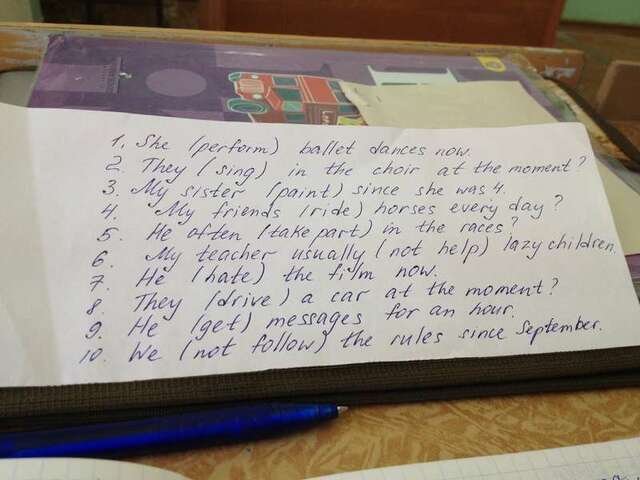 1. She (perform) ballet dances now.
2. They (sing) in the choir at the moment?
3. My sister (paint) since she was 4.
4. My friends (ride) horses every day?
5. He often (take part) in the races?
6. My teacher usually (not help) lazy children.
7. He (hate) the film now.
8. They (drive) a car at the moment?
9. He (get) messages for an hour.
10. We (not follow) the rules since September.